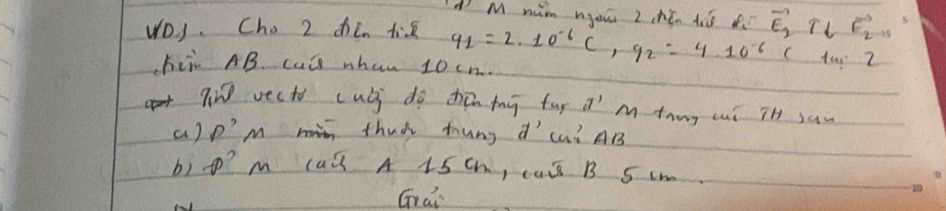 M nằm ngoài 2 điện tích
VD1. Cho 2 điện tích q1 = 2.10⁻⁶ C, q2 = 4.10⁻⁶ C tại 2
điểm AB. cách nhau 10 cm.
Tìm vectơ cường độ điện trường tại đ' M trong các TH sau
a) Đ' M thuộc trung đ' của AB
b) Đ' M cách A 15 cm, cách B 5 cm.
Giải